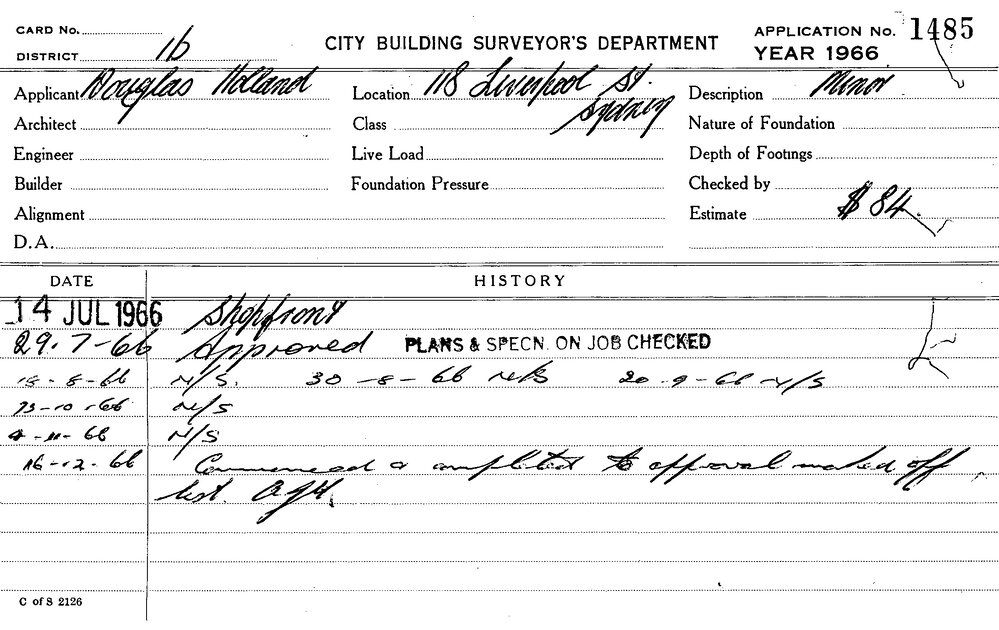 CARD No.
DISTRICT 1b
CITY BUILDING SURVEYOR'S DEPARTMENT
APPLICATION No. 1485
YEAR 1966
Applicant Douglas Holland
Location 118 Liverpool St. Sydney
Description Minor
Architect
Class
Nature of Foundation
Engineer
Live Load
Depth of Footings
Builder
Foundation Pressure
Checked by
Alignment
Estimate $84
D.A.
DATE HISTORY
14 JUL 1966 Shopfront
29.7-66 Approved PLANS & SPECN. ON JOB CHECKED
18-8-66 N/S. 30-8-66 N/S 20-9-66 N/S
13-10-66 N/S
4-11-66 N/S
16-12-66 Commenced & completed to approval marked off
list.
C of S 2126